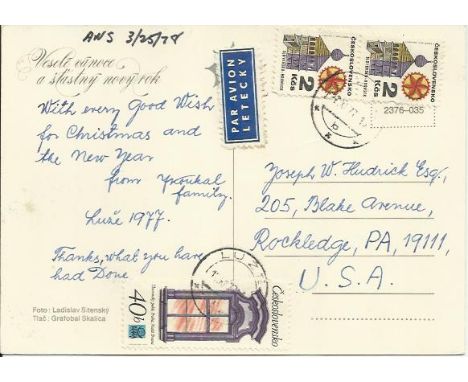 ANS 3/25/78
Veselé vánoce
a šťastný nový rok
With every Good Wish
for Christmas and
the New Year
from Troukal
family.
Luže 1977.
Thanks, what you have
had Done
Foto : Ladislav Sitenský
Tlač : Grafobal Skalica
PAR AVION
LETECKY
ČESKOSLOVENSKO
2 Kčs
ČESKOSLOVENSKO
2 Kčs
2376-035
Joseph W. Hudrick Esq.,
205, Blake Avenue,
Rockledge, PA, 19111,
U.S.A.
LUŽE
40h
Československo